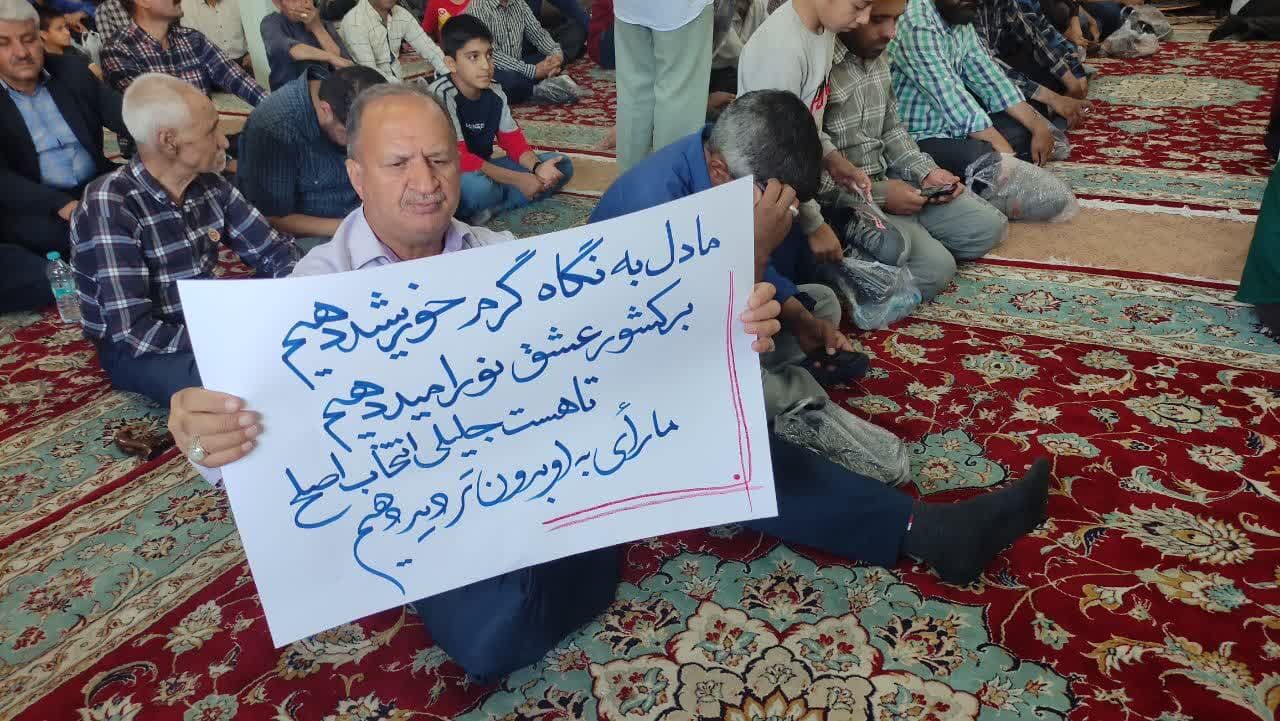 ما دل به نگاه گرم خورشید دهیم
بر کشور عشق نور امید دهیم
تا هست جلیلی انتخاب اصلح
ما رأی به او بدون تردید دهیم